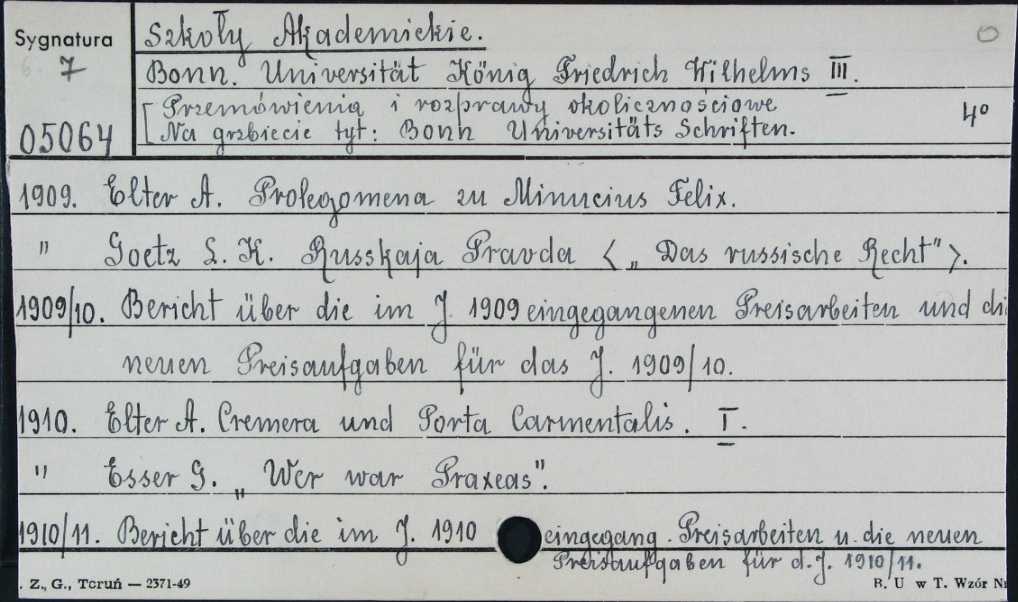 Sygnatura
7
05064
Szkoły Akademickie.
Bonn. Universität König Friedrich Wilhelms III.
[Przemówienia i rozprawy okolicznościowe
Na grzbiecie tyt: Bonn Universitäts Schriften.
4º
1909. Elter A. Prolegomena zu Minucius Felix.
" Goetz L. K. Russkaja Pravda <„Das russische Recht">.
1909/10. Bericht über die im J. 1909 eingegangenen Preisarbeiten und di
neuen Preisaufgaben für das J. 1909/10.
1910. Elter A. Cremera und Porta Carmentalis. I.
" Esser G. „Wer war Praxeas".
1910/11. Bericht über die im J. 1910 eingegang. Preisarbeiten u. die neuen
Preisaufgaben für d. J. 1910/11.
. Z., G., Toruń — 2371-49
R. U w T. Wzór Nr